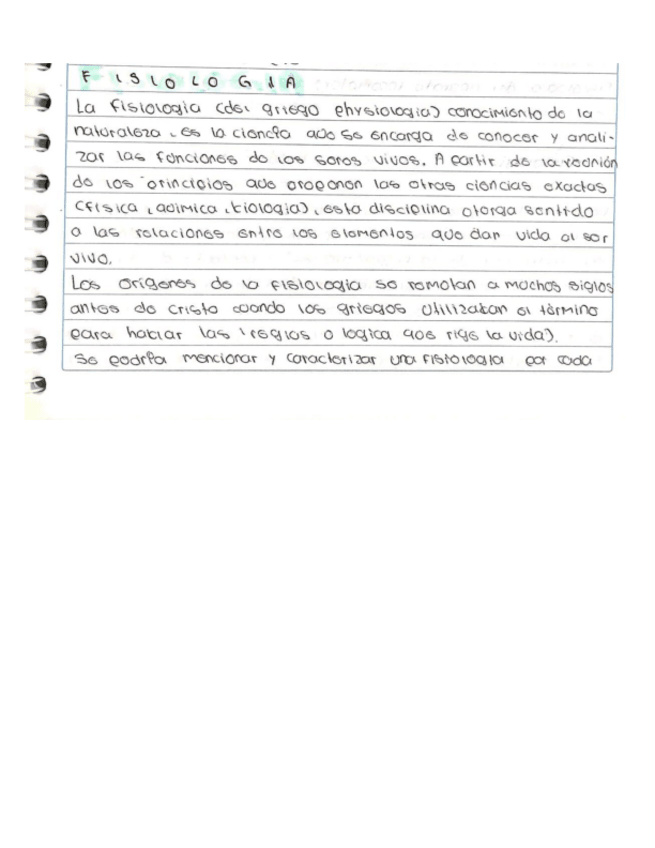 FISIOLOGIA
La fisiologia (del griego physiologia) conocimiento de la
naturaleza, es la ciencia que se encarga de conocer y anali-
zar las funciones de los seres vivos. A partir de la reunión
de los principios que proponen las otras ciencias exactas
(fisica, quimica, biologia), esta disciplina otorga sentido
a las relaciones entre los elementos que dan vida al ser
vivo.
Los orígenes de la fisiologia se remotan a muchos siglos
antes de cristo cuando los griegos utilizaban el término
para hablar las (reglas o logica que rige la vida).
Se podría mencionar y caracterizar una fisiologia por cada